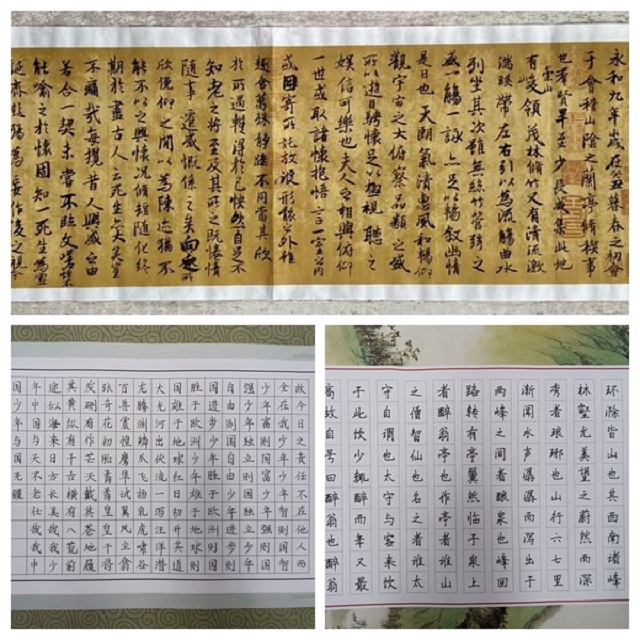 永和九年歲在癸丑暮春之初會
于會稽山陰之蘭亭脩稧事
也羣賢畢至少長咸集此地
有崇山峻領茂林脩竹又有清流激
湍暎帶左右引以為流觴曲水
列坐其次雖無絲竹管弦之
盛一觴一詠亦足以暢叙幽情
是日也天朗氣清惠風和暢仰
觀宇宙之大俯察品類之盛
所以遊目騁懷足以極視聽之
娛信可樂也夫人之相與俯仰
一世或取諸懷抱悟言一室之內
或因寄所託放浪形骸之外雖
趣舍萬殊靜躁不同當其欣
於所遇暫得於己快然自足不
知老之將至及其所之既惓情
隨事遷感慨係之矣向之所
欣俛仰之閒以為陳迹猶不
能不以之興懷況脩短隨化終
期於盡古人云死生亦大矣豈
不痛哉每攬昔人興感之由
若合一契未嘗不臨文嗟悼不
能喻之於懷固知一死生為虛
誕齊彭殤為妄作後之視今
故今日之责任不在他人而
全在我少年少年智则国智
少年富则国富少年强则国
强少年独立则国独立少年
自由则国自由少年进步则
国进步少年胜于欧洲则国
胜于欧洲少年雄于地球则
国雄于地球红日初升其道
大光河出伏流一泻汪洋潜
龙腾渊鳞爪飞扬乳虎啸谷
百兽震惶鹰隼试翼风尘翕
张奇花初胎矞矞皇皇干将
发硎有作其芒天戴其苍地履
其黄纵有千古横有八荒前
途似海来日方长美哉我少
年中国与天不老壮哉我中
国少年与国无疆
环滁皆山也其西南诸峰
林壑尤美望之蔚然而深
秀者琅琊也山行六七里
渐闻水声潺潺而泻出于
两峰之间者酿泉也峰回
路转有亭翼然临于泉上
者醉翁亭也作亭者谁山
之僧智仙也名之者谁太
守自谓也太守与客来饮
于此饮少辄醉而年又最
高故自号曰醉翁也醉翁